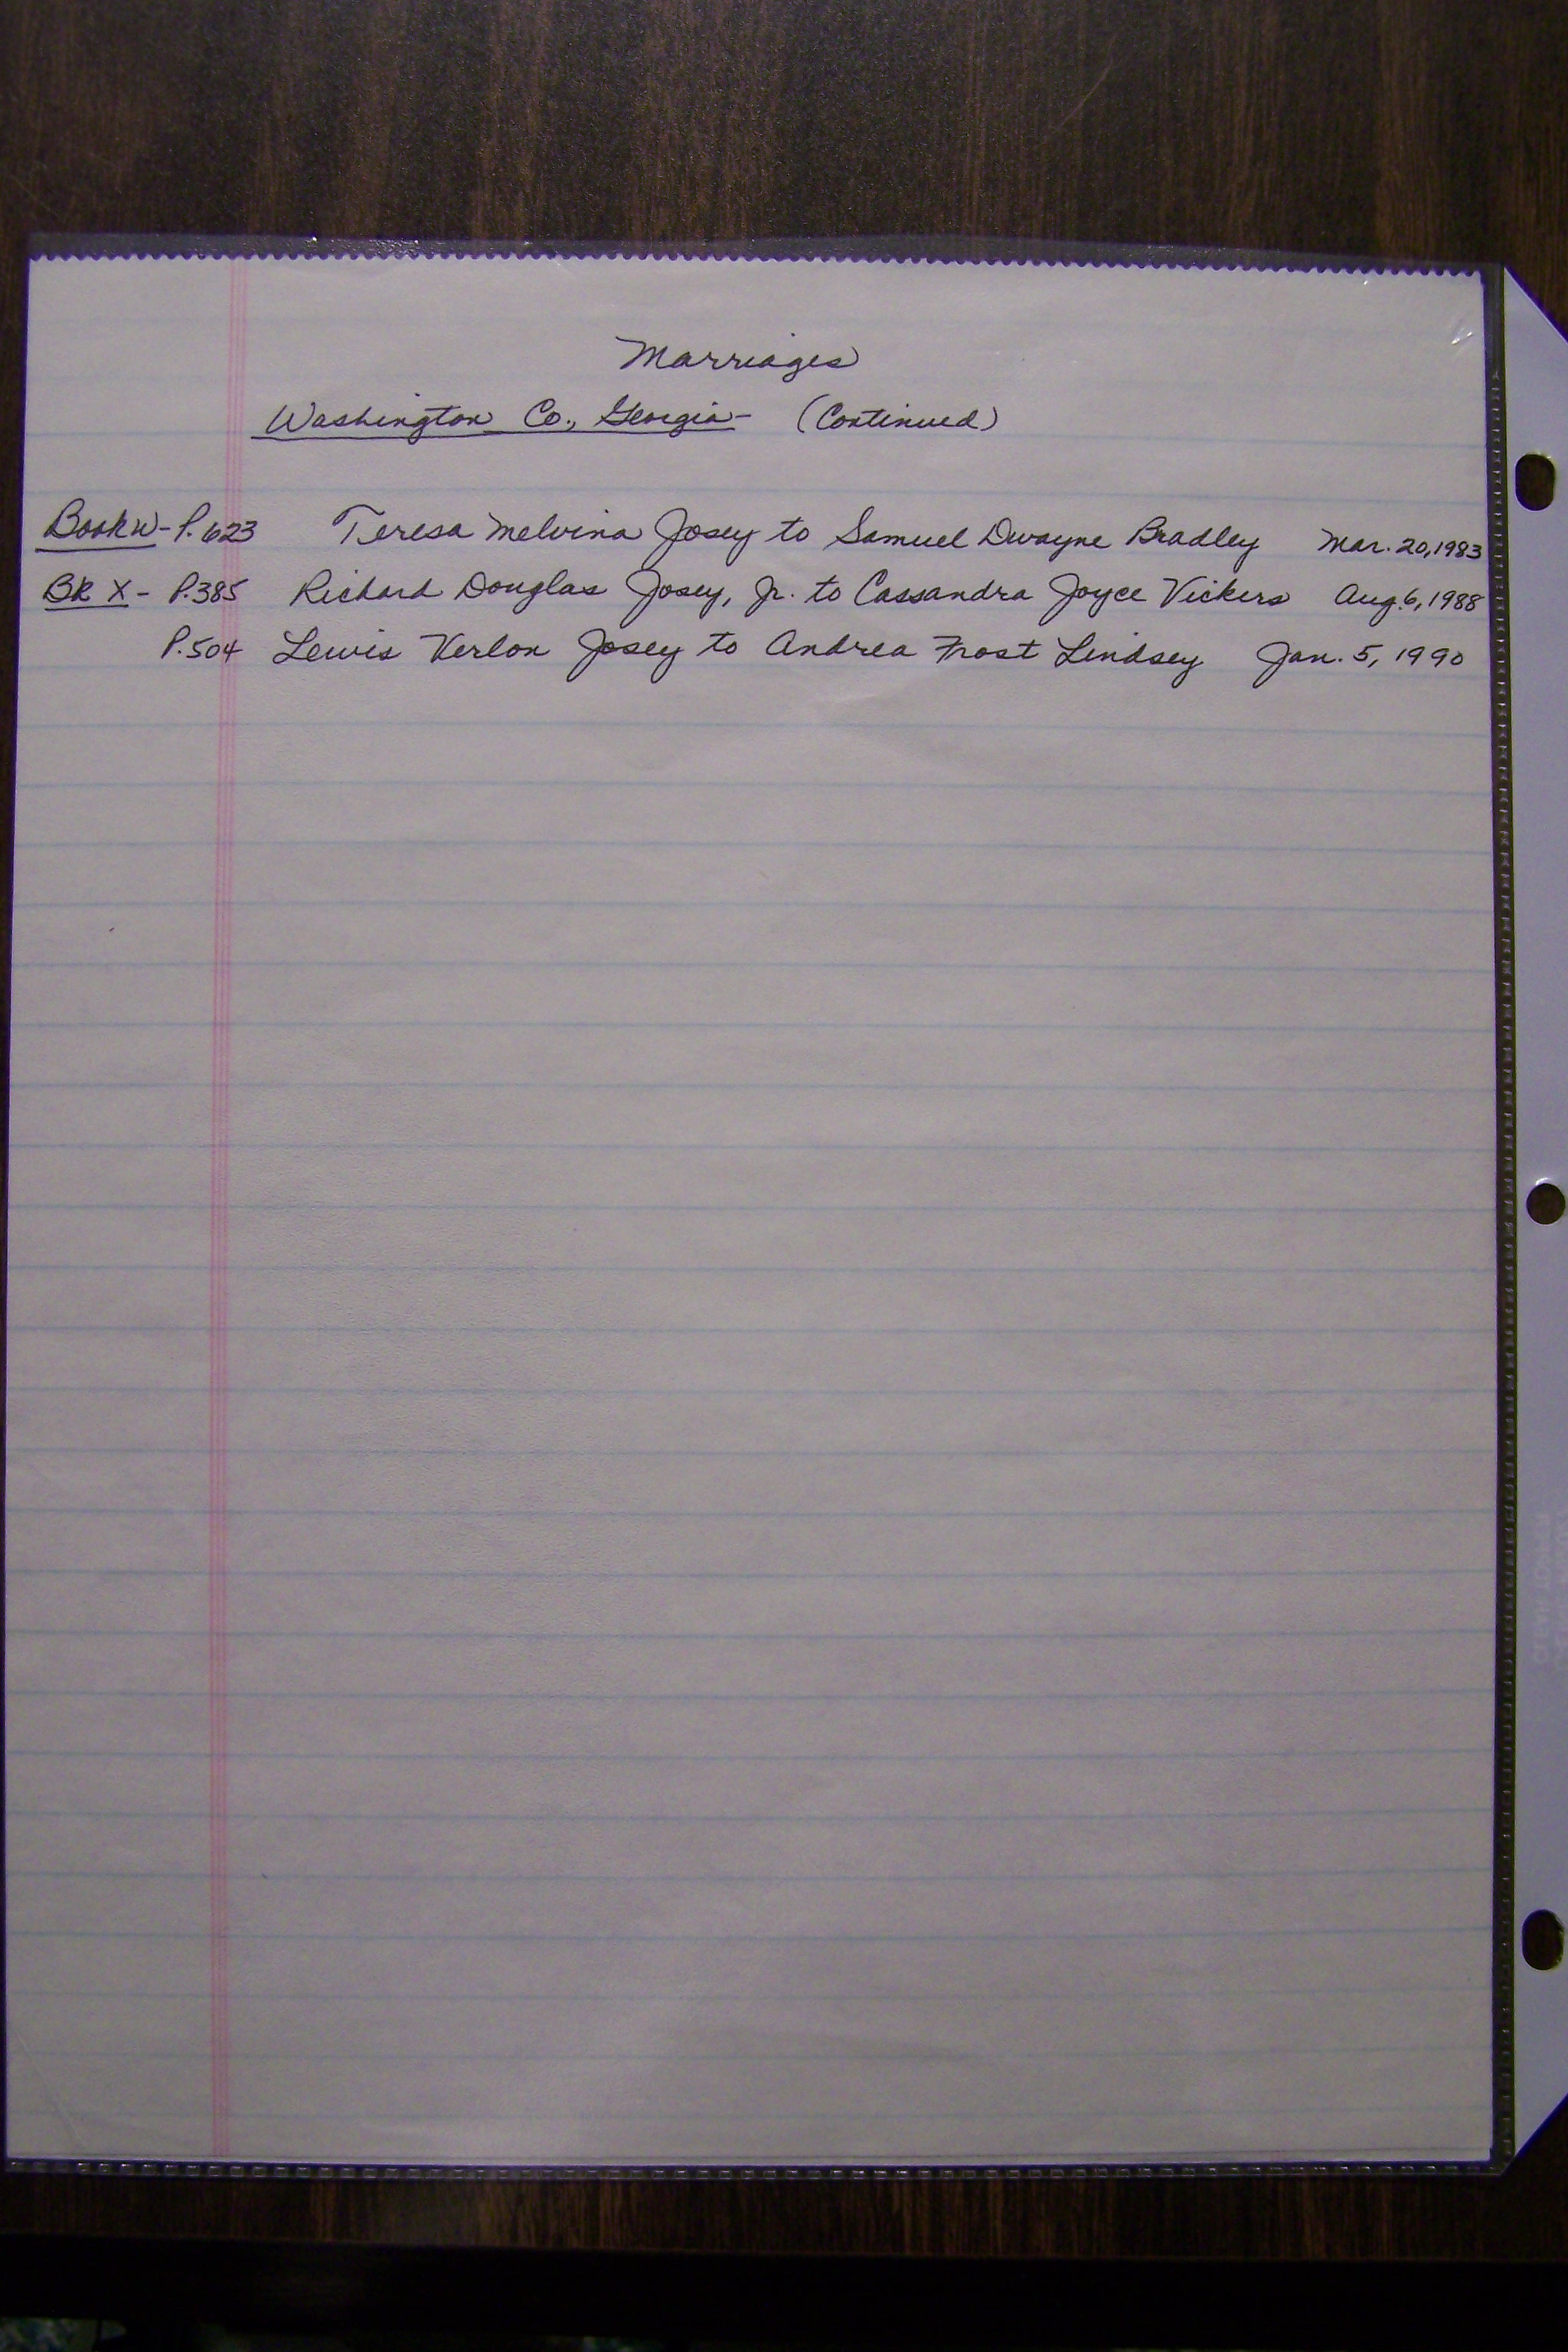 Marriages
Washington Co., Georgia - (Continued)
Book W - P. 623 Teresa Melvina Josey to Samuel Dwayne Bradley Mar. 20, 1983
BK X - P. 385 Richard Douglas Josey, Jr. to Cassandra Joyce Vickers Aug. 6, 1988
P. 504 Lewis Verlon Josey to Andrea Frost Lindsey Jan. 5, 1990